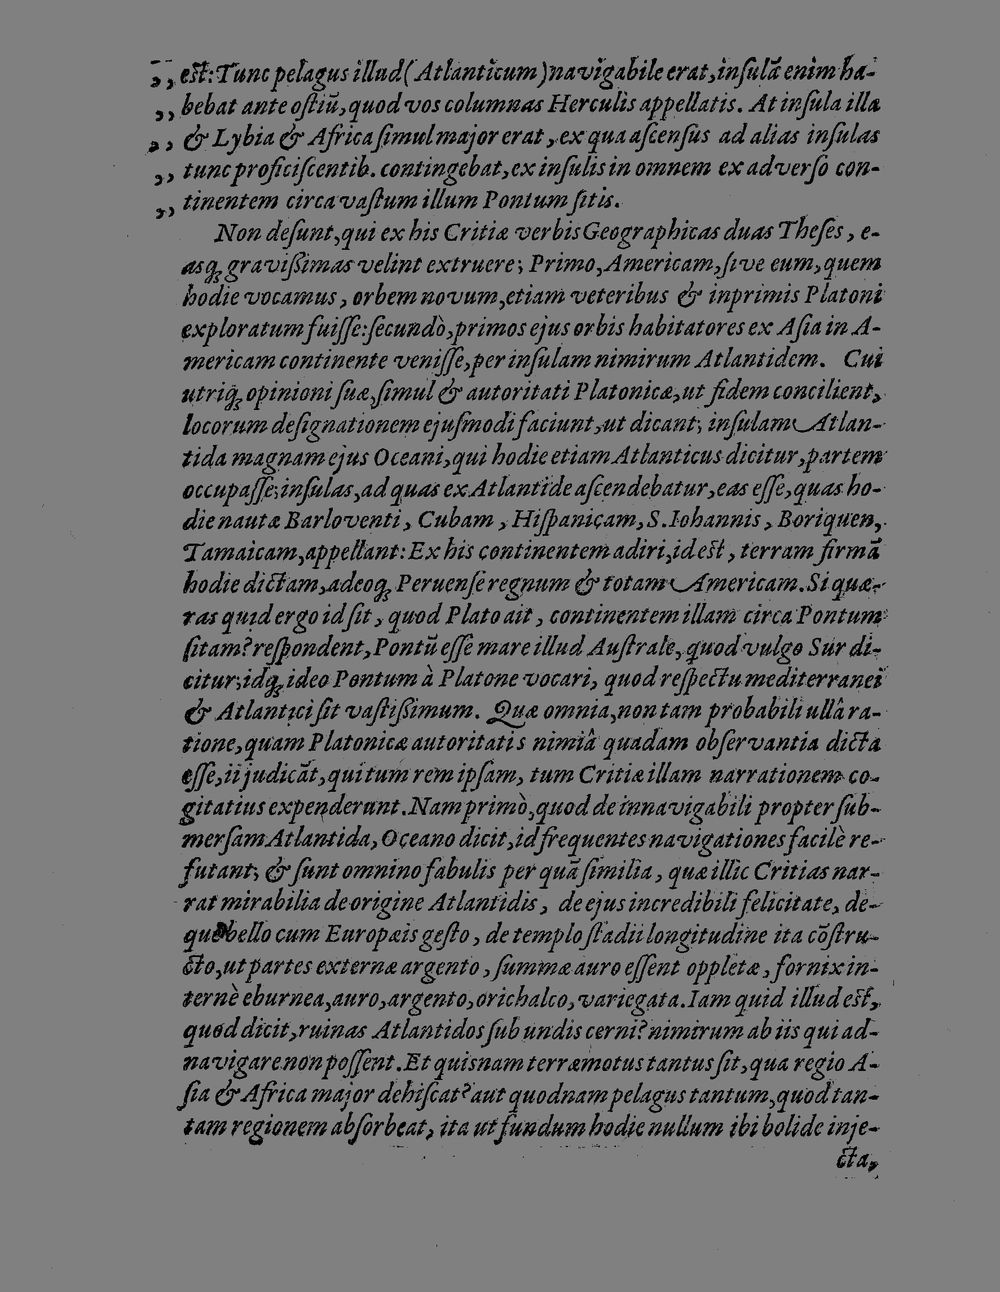 „ est: Tunc pelagus illud (Atlanticum) navigabile erat, insulā enim ha-
„ bebat ante ostiū, quod vos columnas Herculis appellatis. At insula illa
„ & Lybia & Africa simul major erat, ex qua ascensus ad alias insulas
„ tunc proficiscentib. contingebat, ex insulis in omnem ex adverso con-
„ tinentem circa vastum illum Pontum sitis.
Non desunt, qui ex his Critiæ verbis Geographicas duas Theses, e-
asq; gravissimas velint extruere; Primo, Americam, sive eum, quem
hodie vocamus, orbem novum, etiam veteribus & inprimis Platoni
exploratum fuisse: secundò, primos ejus orbis habitatores ex Asia in A-
mericam continente venisse, per insulam nimirum Atlantidem. Cui
utriq; opinioni suæ, simul & autoritati Platonicæ, ut fidem concilient,
locorum designationem ejusmodi faciunt, ut dicant; insulam Atlan-
tida magnam ejus Oceani, qui hodie etiam Atlanticus dicitur, partem
occupasse; insulas, ad quas ex Atlantide ascendebatur, eas esse, quas ho-
die nautæ Barloventi, Cubam, Hispanicam, S. Iohannis, Boriquen,
Tamaicam, appellant: Ex his continentem adiri, id est, terram firmā
hodie dictam, adeoq; Peruense regnum & totam Americam. Si quæ-
ras quid ergo id sit, quod Plato ait, continentem illam circa Pontum
sitam? respondent, Pontū esse mare illud Australe, quod vulgo Sur di-
citur; idq; ideo Pontum à Platone vocari, quod respectu mediterranei
& Atlantici sit vastissimum. Quæ omnia, non tam probabili ullâ ra-
tione, quam Platonicæ autoritatis nimiâ quadam observantia dicta
esse, ii judicāt, qui tum rem ipsam, tum Critiæ illam narrationem co-
gitatius expenderunt. Nam primò, quod de innavigabili propter sub-
mersam Atlantida, Oceano dicit, id frequentes navigationes facilè re-
futant; & sunt omnino fabulis per quā similia, quæ illic Critias nar-
rat mirabilia de origine Atlantidis, de ejus incredibili felicitate, de-
que bello cum Europæis gesto, de templo stadii longitudine ita cōstru-
cto, ut partes externæ argento, summæ auro essent oppletæ, fornix in-
ternè eburnea, auro, argento, orichalco, variegata. Iam quid illud est,
quod dicit, ruinas Atlantidos sub undis cerni? nimirum ab iis qui ad-
navigare non possent. Et quisnam terræmotus tantus sit, qua regio A-
sia & Africa major dehiscat? aut quodnam pelagus tantum, quod tan-
tam regionem absorbeat, ita ut fundum hodie nullum ibi bolide inje-
cta,